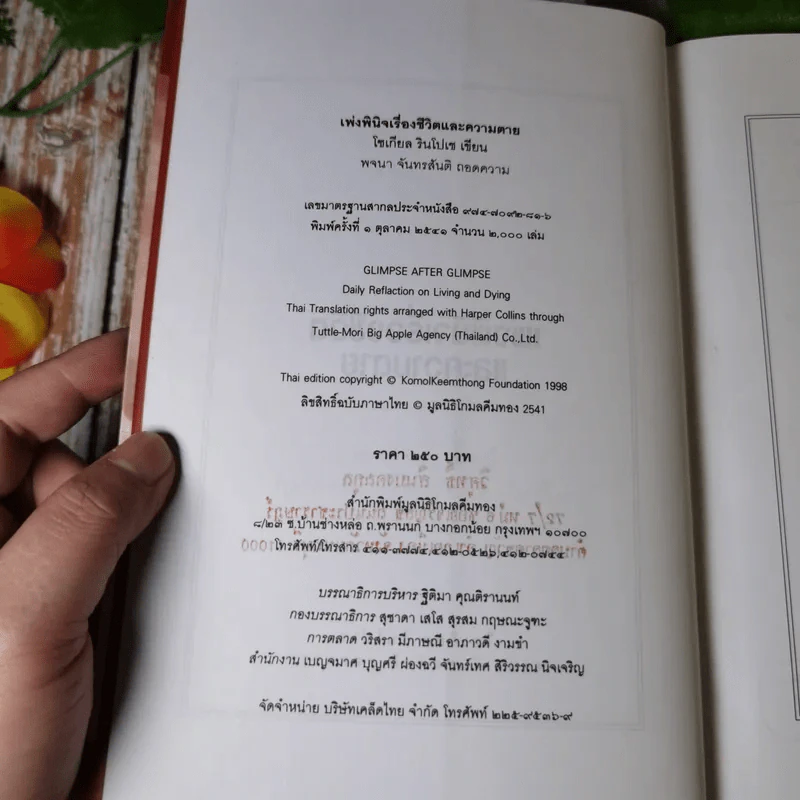 เพ่งพินิจเรื่องชีวิตและความตาย
โซเกียล รินโปเช เขียน
พจนา จันทรสันติ ถอดความ
เลขมาตรฐานสากลประจำหนังสือ ๙๗๔-๗๐๙๒-๘๑-๖
พิมพ์ครั้งที่ ๑ ตุลาคม ๒๕๔๑ จำนวน ๒,๐๐๐ เล่ม
GLIMPSE AFTER GLIMPSE
Daily Reflaction on Living and Dying
Thai Translation rights arranged with Harper Collins through
Tuttle-Mori Big Apple Agency (Thailand) Co.,Ltd.
Thai edition copyright © KomolKeemthong Foundation 1998
ลิขสิทธิ์ฉบับภาษาไทย © มูลนิธิโกมลคีมทอง 2541
ราคา ๒๕๐ บาท
สำนักพิมพ์มูลนิธิโกมลคีมทอง
๘/๒๓ ซ.บ้านช่างหล่อ ถ.พรานนก บางกอกน้อย กรุงเทพฯ ๑๐๗๐๐
โทรศัพท์/โทรสาร ๔๑๑-๓๗๗๔,๔๑๒-๐๕๒๖,๔๑๒-๐๗๔๔
บรรณาธิการบริหาร ฐิติมา คุณติรานนท์
กองบรรณาธิการ สุชาดา เสโส สุรสม กฤษณะจูฑะ
การตลาด วริสรา มีภาษณี อาภาวดี งามขำ
สำนักงาน เบญจมาศ บุญศรี ผ่องฉวี จันทร์เทศ สิริวรรณ นิจเจริญ
จัดจำหน่าย บริษัทเคล็ดไทย จำกัด โทรศัพท์ ๒๒๕-๙๕๓๖-๙